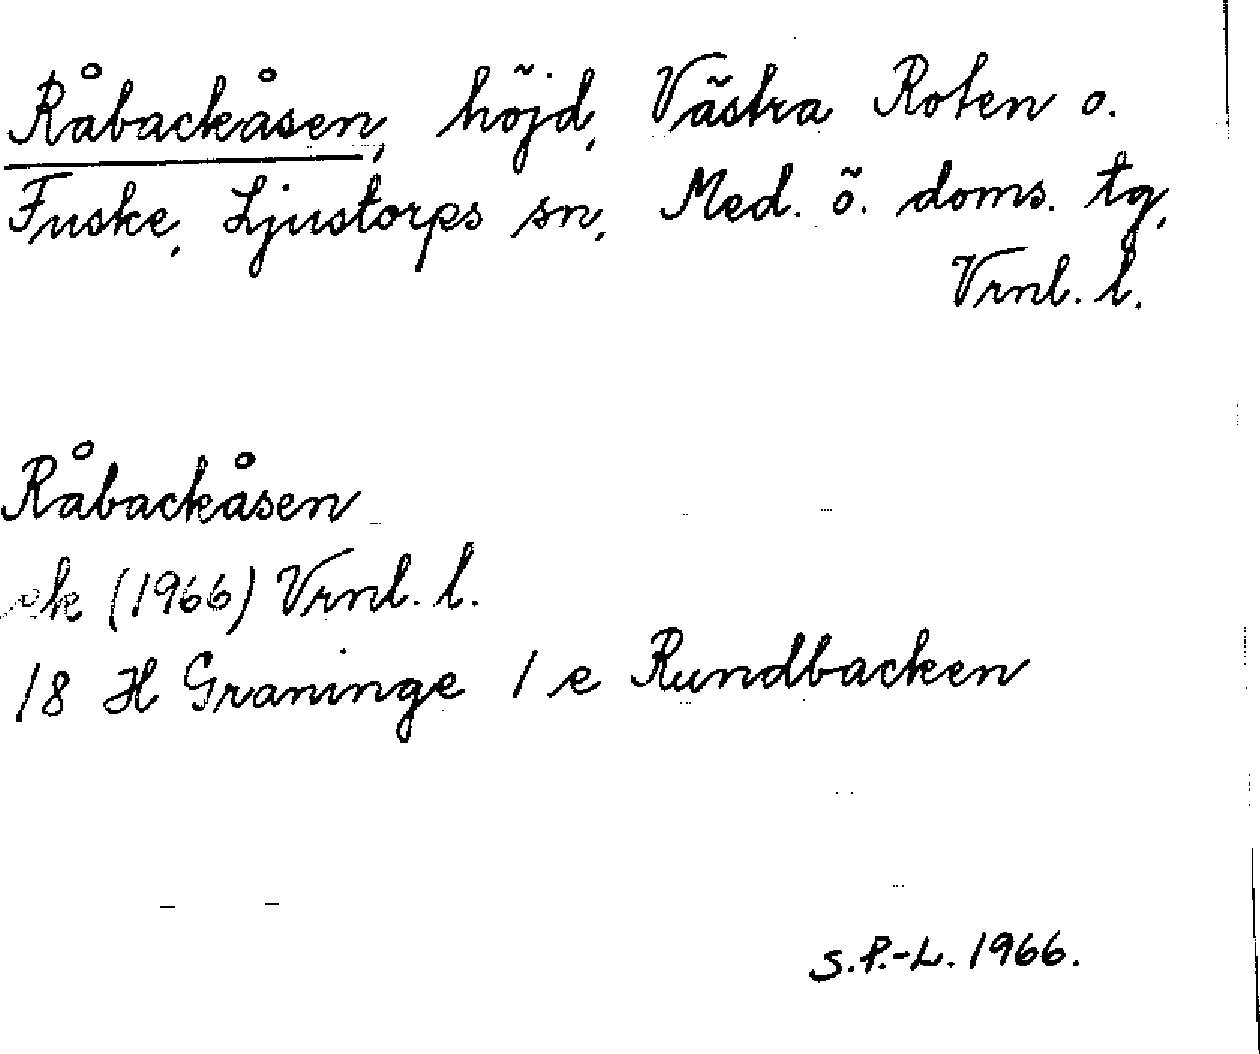 Råbackåsen, höjd, Västra Roten o.
Fuske, Ljustorps sn, Med. ö. doms. tg,
Vrnl. l.
Råbackåsen
ek (1966) Vrnl. l.
18 H Graninge 1 e Rundbacken
S.P.-L. 1966.